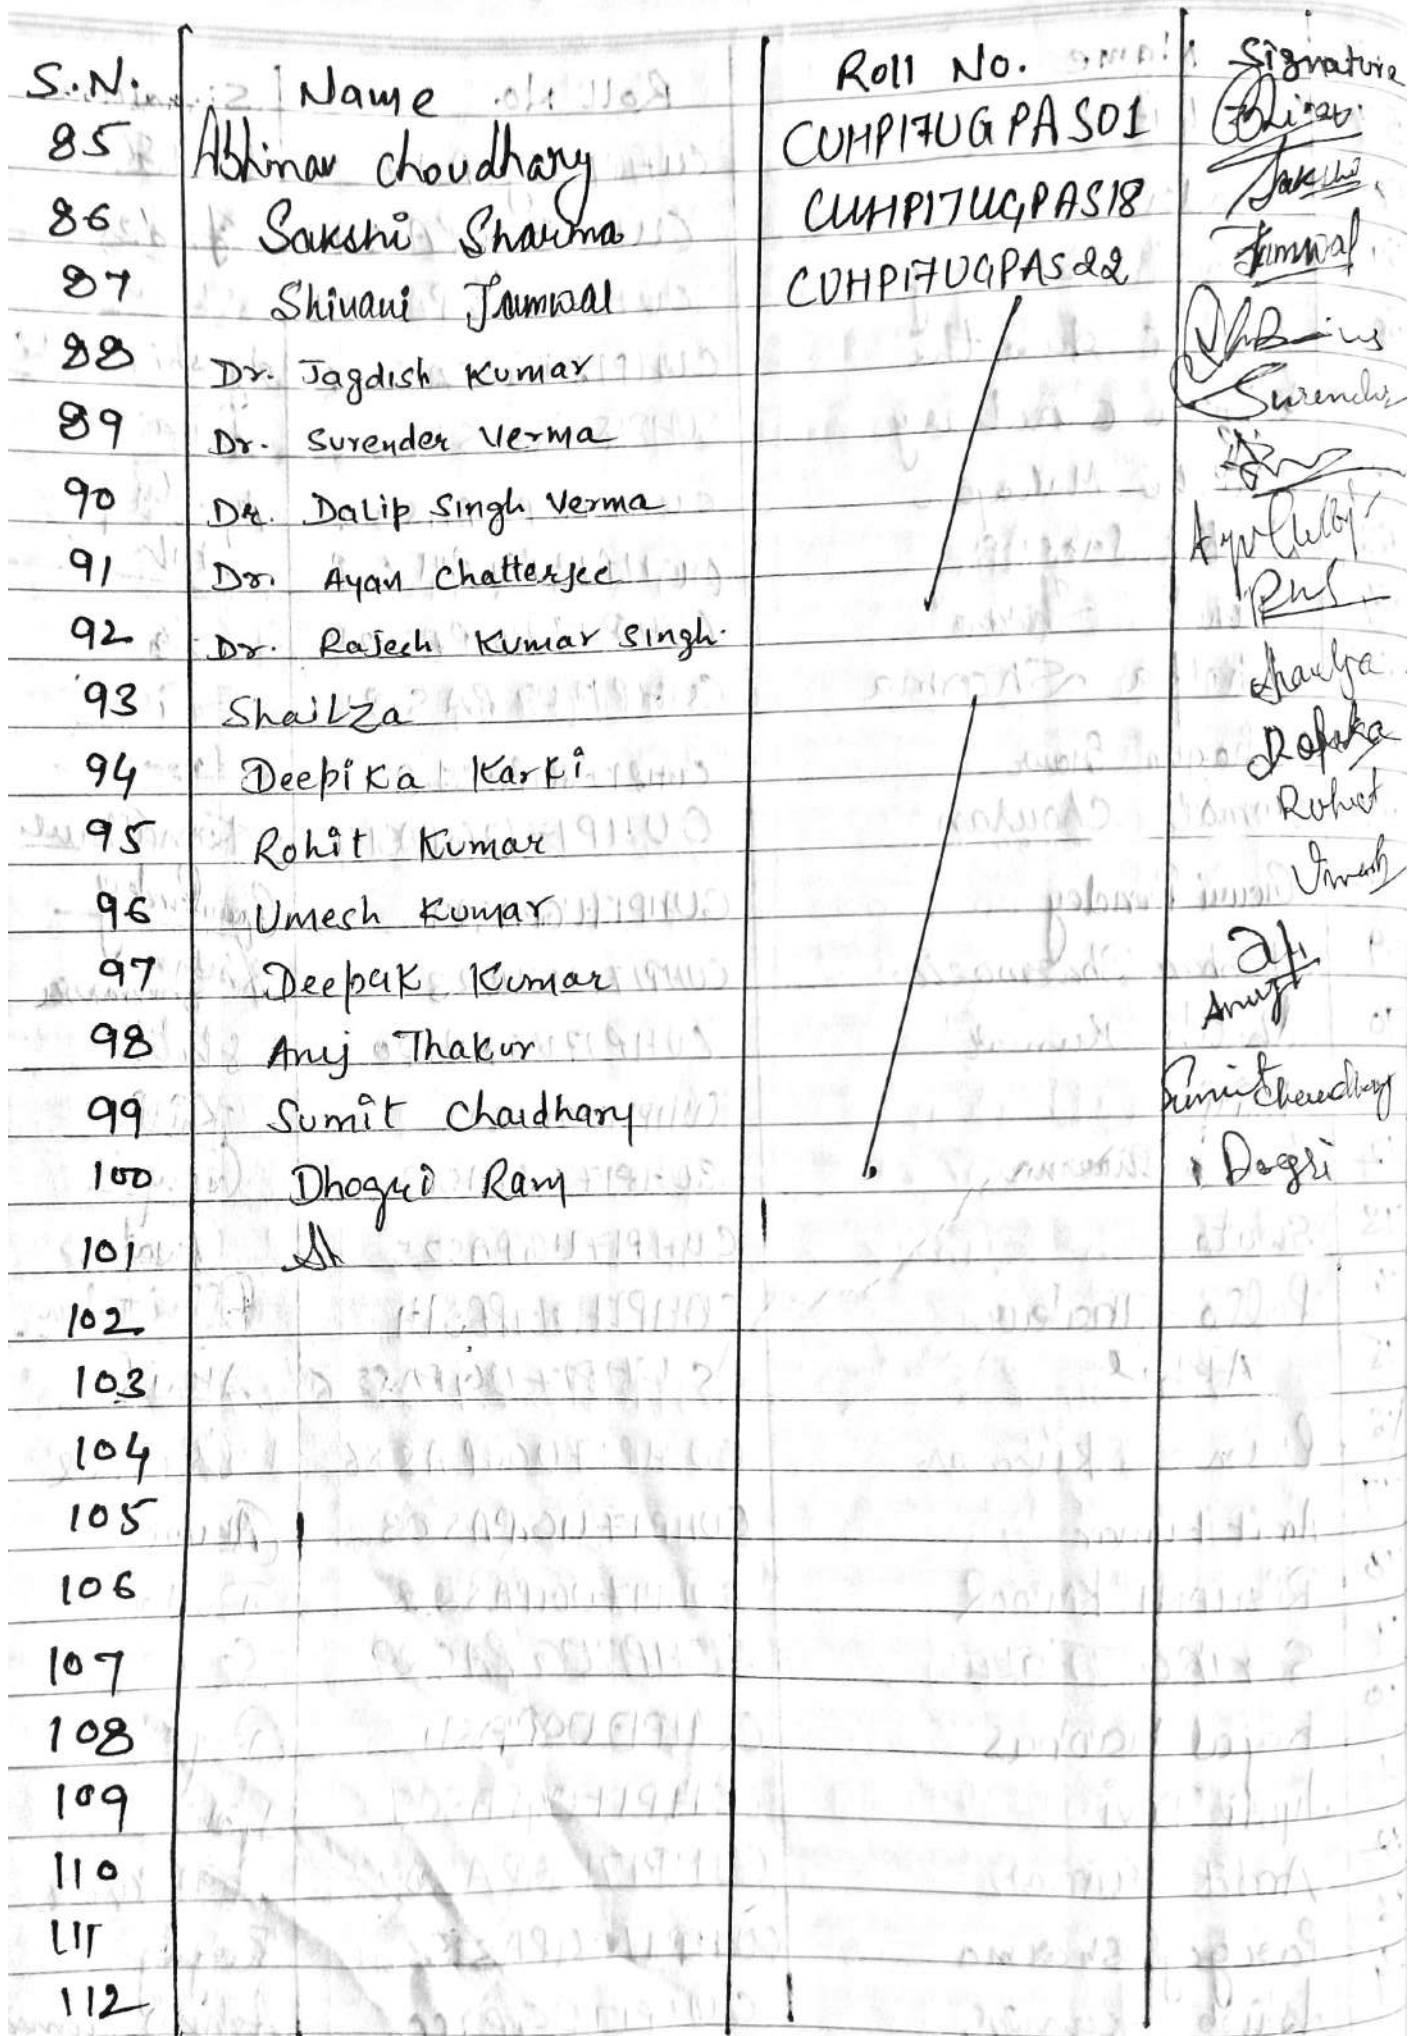 S.N. Name Roll No. Signature
85 Abhinav Choudhary CUHP17UGPAS01
86 Sakshi Sharma CUHP17UGPAS18 Sakshi
87 Shivani Jamwal CUHP17UGPAS22 Jamwal
88 Dr. Jagdish Kumar
89 Dr. Surender Verma Surender
90 Dr. Dalip Singh Verma
91 Dr. Ayan Chatterjee
92 Dr. Rajesh Kumar Singh.
93 Shailza
94 Deepika Karki
95 Rohit Kumar Rohit
96 Umesh Kumar Umesh
97 Deepak Kumar
98 Anuj Thakur Anuj
99 Sumit Chaudhary Sumit Chaudhary
100 Dhogri Ram Dogri
101 Sh
102
103
104
105
106
107
108
109
110
111
112